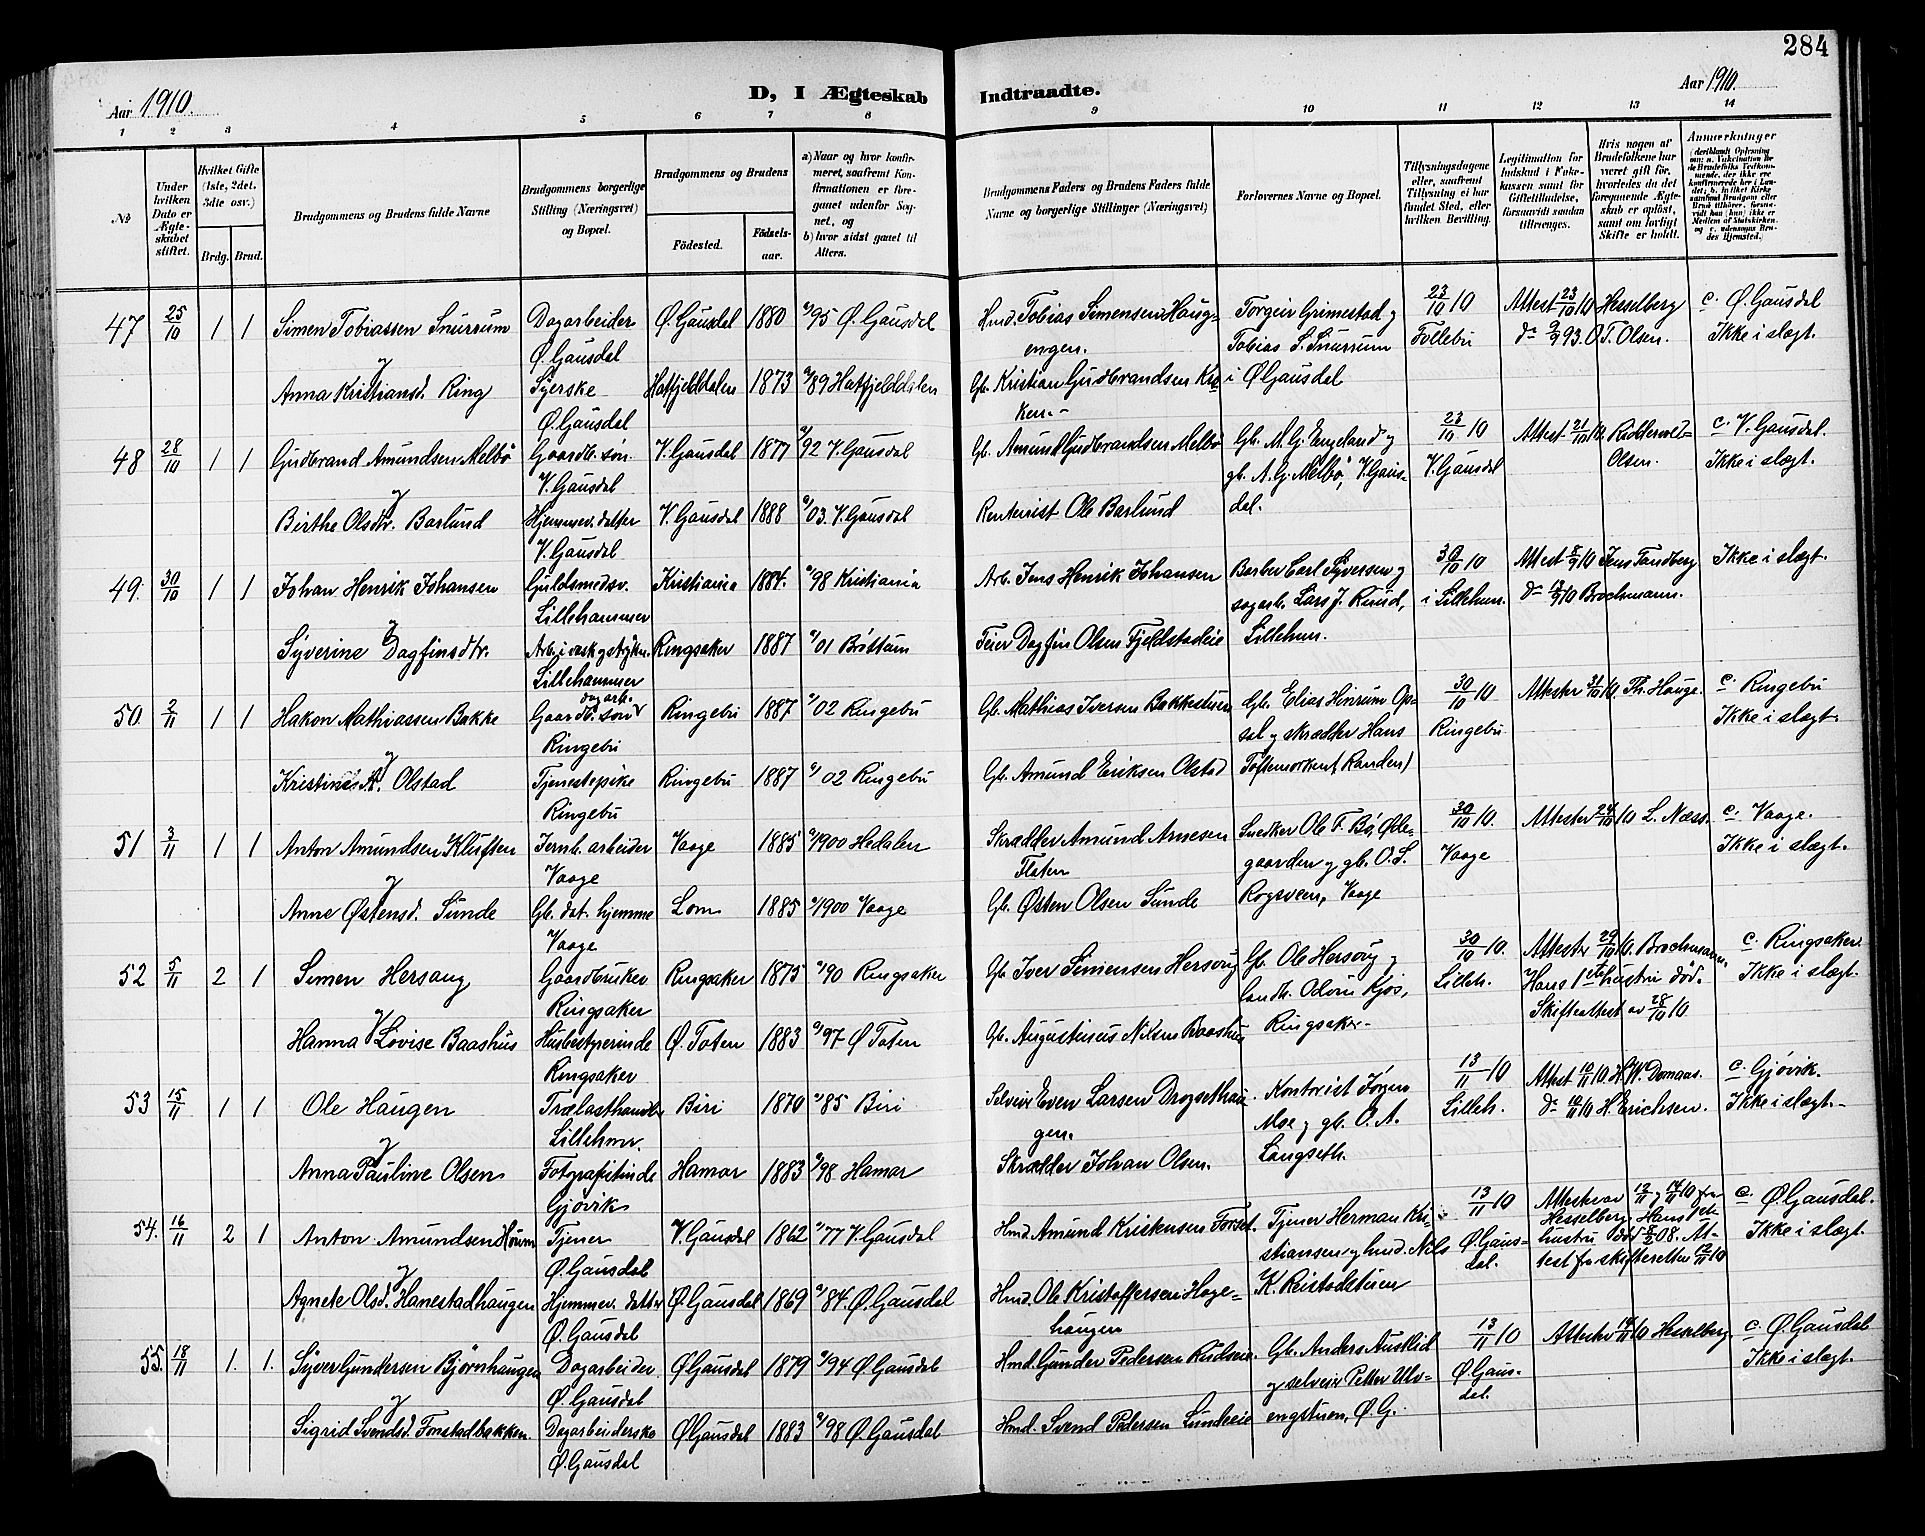 284
Aar 1910.
D, I Ægteskab Indtraadte.
Aar 1910.
1 2 3 4 5 6 7 8 9 10 11 12 13 14
No
Under hvilken Dato er Ægteskabet stiftet.
Hvilket Gifte (1ste, 2det, 3die osv.)
Brdg. Brud.
Brudgommens og Brudens fulde Navne
Brudgommens borgerlige Stilling (Næringsvei) og Bopæl.
Brudgommens og Brudens
Födested. Födselsaar.
a) Naar og hvor konfirmeret, saafremt Konfirmationen er foregaaet udenfor Sognet, og
b) hvor sidst gaaet til Alters.
Brudgommens Faders og Brudens Faders fulde Navne og borgerlige Stillinger (Næringsvei)
Forlovernes Navne og Bopæl.
Tillysningsdagene eller, saafremt Tillysning ei har fundet Sted, efter hvilken Bevilling.
Legitimation for Indskud i Enkekassen samt for Giftetilladelse, forsaavidt saadan tiltrænges.
Hvis nogen af Brudefolkene har været gift för, hvorledes da det foregaaende Ægteskab er oplöst, samt om lovligt Skifte er holdt.
Anmerkninger
47 25/10 1 1 Simen Tobiassen Snurrum Dagarbeider Ø. Gausdal 1880 95 Ø. Gausdal Hmd. Tobias Simensen Haug- Torgeir Grimestad og 23/10 10 Attest 23/10 10 Hesselberg c. Ø. Gausdal
og Ø. Gausdal engen. Tobias S. Snurrum Follebu do 9/9 93. O. T. Olsen. Ikke i slægt.
Anna Kristiansd. Ring Syerske Hatfjelddalen 1873 89 Hatfjelddalen Gb. Kristian Gudbrandsen i Ø Gausdal
Ø. Gausdal
48 28/10 1 1 Gudbrand Amundsen Melbö Gaardb. søn. V. Gausdal 1877 92 V. Gausdal Gb. Amund Gudbrandsen Melbö Gb. M. G. Engeland og 23/10 10 Attest 21/10 10. c. V. Gausdal.
og V. Gausdal gb. A. G. Melbö, V. Gaus- V. Gausdal Olsen. Ikke i slægt.
Birthe Olsdtr. Barlund Hjemmev. datter V. Gausdal 1888 03. V. Gausdal Rentenist Ole Barlund dal.
V. Gausdal
49. 30/10 1 1 Johan Henrik Johansen Guldsmedsv. Kristiania 1884. 98 Kristiania Arb. Jens Henrik Johansen Barber Carl Syversen og 30/10 10 Attest 8/9 10 Jens Tandberg Ikke i slægt.
og Lillehammer sagarb. Lars J. Ruud, i Lillehm. Brochmann.
Syverine Dagfinsdtr. Arb. i vask og strykn. Ringsaker 1887 01 Bröttum Feier Dagfin Olsen Fjeldstadeie Lillehm.
Lillehammer
50. 2/11 1 1 Hakon Mathiassen Bakke Gaardb. søn dagarb. Ringebu 1887 02 Ringebu Gb. Mathias Iversen Bakkestuen Gb. Elias Hinrum Op- 30/10 10 Attester 31/10 10. Th. Hauge c. Ringebu
og Ringebu sal og skrædder Hans Ringebu Ikke i slægt.
Kristine A. Olstad Tjenestepike Ringebu 1887 02 Ringebu Gb. Amund Eriksen Olstad Toftemorken (Randen)
Ringebu
51 3/11 1 1 Anton Amundsen Kluften Jernb. arbeider Vaage 1885 1900 Hedalen Skrædder Amund Arnesen Snedker Ole F. Bö, Öde- 30/10 10. Attester 24/10 10 L. Næss. c. Vaage.
og Vaage Flaten gaarden og gb. O. S. Vaage Ikke i slægt.
Anne Østensd. Sunde Gb. dat. hjemme Lom 1885 1900 Vaage Gb. Østen Olsen Sunde Rogsveen, Vaage
Vaage
52 5/11 2 1 Simen Hersoug Gaardbruker Ringsaker 1875 90 Ringsaker Gb. Iver Simensen Hersoug Gb. Ole Hersoug og 30/10 10. Attester 29/10 10. Brochmann. c. Ringsaker
og Ringsaker landh. Odvin Kjos, Lilleh. Hans 1ste hustru död. Ikke i slægt.
Hanna Lovise Baashus Husbestyrerinde Ø. Toten 1883 97 Ø Toten Gb. Augustinus Nilsen Baashus Ringsaker. Skifteattest av 28/10 10.
Ringsaker
53 15/11 1 1 Ole Haugen Trælasthandler Biri 1870 85 Biri Selveier Even Larsen Drogsethau- Kontorist Jörgen 13/11 10 Attest 10/11 10. H. W. Domaas. c. Gjövik.
og Lillehmr. gen. Moe og gb. O. A. Lilleh. do 10/11 10 H. Erichsen. Ikke i slægt.
Anna Pauline Olsen Fotografistinde Hamar 1883 98 Hamar Skrædder Johan Olsen. Langseth.
Gjövik
54. 16/11 2 1 Anton Amundsen Tjener V. Gausdal 1862 77 V. Gausdal Hmd. Amund Kristensen Forset Tjener Herman Kri- 13/11 10 Attester av 12/11 og 14/11 10 fra c. Ø Gausdal.
og Ø. Gausdal stiansen og hmd. Nils Ø. Gaus- Hesselberg. Hans 1ste hustru död 5/2 08. At- Ikke i slægt.
Agnete Olsd. Hanestadhaugen Hjemmev. datter Ø. Gausdal 1869 84 Ø. Gausdal Hmd. Ole Kristoffersen Hage- K. Reistadstuen dal. test fra skifteretten 12/11 10
Ø. Gausdal haugen
55. 18/11 1. 1. Syver Gundersen Björnhaugen Dagarbeider Ø Gausdal 1879 94 Ø. Gausdal Hmd. Gunder Pedersen Rudseie. Gb. Anders Austlid 13/11 10 Attester 14/11 10 Hesselberg c. Ø. Gausdal
og Ø. Gausdal og selveier Petter Ulv- Ø. Gaus- Ikke i slægt.
Sigrid Svendsd. Fonstadbakken. Dagarbeiderske Ø Gausdal 1883 98 Ø. Gausdal Hmd. Svend Pedersen Lundeeie engstuen, Ø. G. dal.
Ø. Gausdal